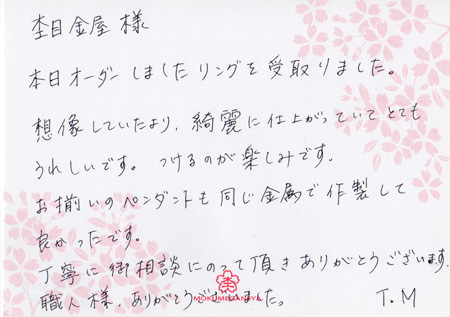 杢目金屋 様
本日オーダーしましたリングを受取りました。
想像していたより、綺麗に仕上がっていてとても
うれしいです。 つけるのが楽しみです。
お揃いのペンダントも同じ金属で作製して
良かったです。
丁寧に御相談にのって頂きありがとうございます。
職人様、ありがとうございました。
MOKUMEGANEYA
T.M